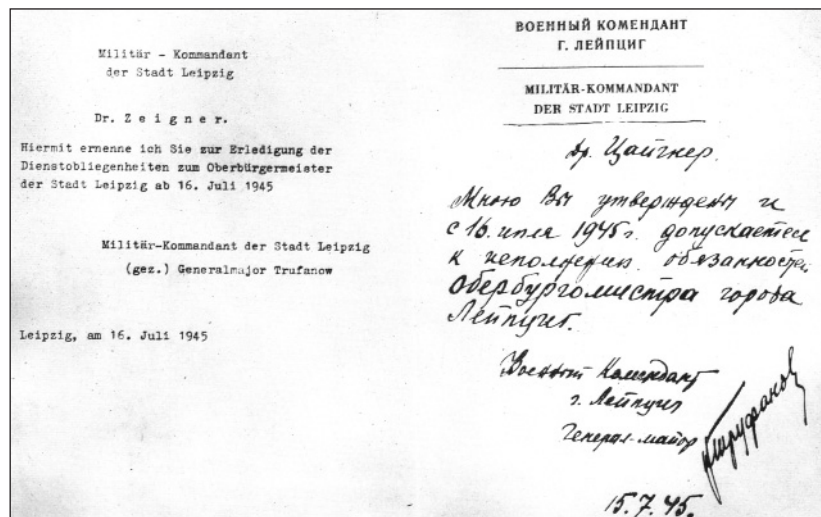 Militär - Kommandant
der Stadt Leipzig
Dr. Z e i g n e r.
Hiermit ernenne ich Sie zur Erledigung der
Dienstobliegenheiten zum Oberbürgermeister
der Stadt Leipzig ab 16. Juli 1945
Militär-Kommandant der Stadt Leipzig
(gez.) Generalmajor Trufanow
Leipzig, am 16. Juli 1945
ВОЕННЫЙ КОМЕНДАНТ
Г. ЛЕЙПЦИГ
MILITÄR-KOMMANDANT
DER STADT LEIPZIG
Др. Цайгнер.
Мною Вы утверждены и
с 16. июля 1945 г. допускаетесь
к исполнению обязанностей
Обербургомистра города
Лейпциг.
Военный Комендант
г. Лейпциг
Генерал-майор
Труфанов
15.7.45.